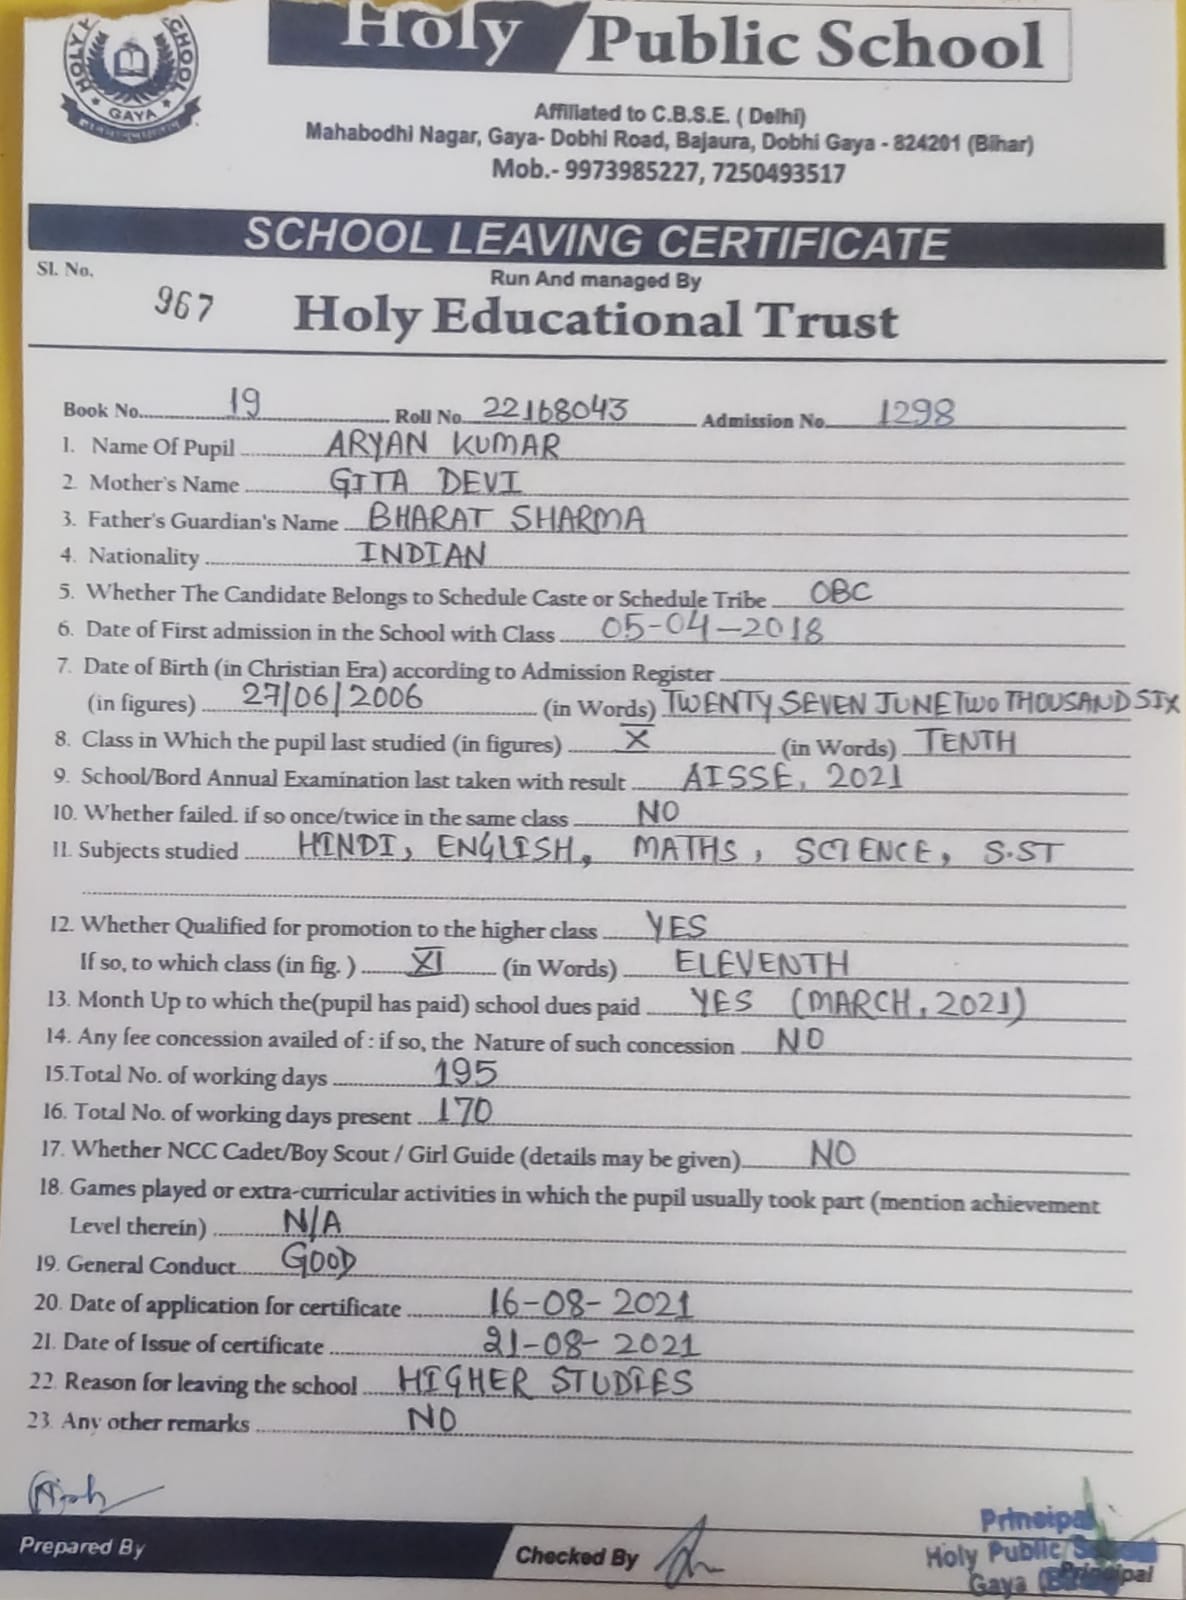 HOLY PUBLIC SCHOOL
GAYA
Holy Public School
Affiliated to C.B.S.E. ( Delhi)
Mahabodhi Nagar, Gaya- Dobhi Road, Bajaura, Dobhi Gaya - 824201 (Bihar)
Mob.- 9973985227, 7250493517
SCHOOL LEAVING CERTIFICATE
Sl. No. 967
Run And managed By
Holy Educational Trust
Book No. 19 Roll No. 22168043 Admission No. 1298
1. Name Of Pupil ARYAN KUMAR
2. Mother's Name GITA DEVI
3. Father's Guardian's Name BHARAT SHARMA
4. Nationality INDIAN
5. Whether The Candidate Belongs to Schedule Caste or Schedule Tribe OBC
6. Date of First admission in the School with Class 05-04-2018
7. Date of Birth (in Christian Era) according to Admission Register
(in figures) 27/06/2006 (in Words) TWENTY SEVEN JUNE TWO THOUSAND SIX
8. Class in Which the pupil last studied (in figures) X (in Words) TENTH
9. School/Bord Annual Examination last taken with result AISSE, 2021
10. Whether failed. if so once/twice in the same class NO
11. Subjects studied HINDI, ENGLISH, MATHS, SCIENCE, S.ST
12. Whether Qualified for promotion to the higher class YES
If so, to which class (in fig. ) XI (in Words) ELEVENTH
13. Month Up to which the(pupil has paid) school dues paid YES (MARCH, 2021)
14. Any fee concession availed of : if so, the Nature of such concession NO
15.Total No. of working days 195
16. Total No. of working days present 170
17. Whether NCC Cadet/Boy Scout / Girl Guide (details may be given) NO
18. Games played or extra-curricular activities in which the pupil usually took part (mention achievement
Level therein) N/A
19. General Conduct GOOD
20. Date of application for certificate 16-08-2021
21. Date of Issue of certificate 21-08-2021
22. Reason for leaving the school HIGHER STUDIES
23. Any other remarks NO
Prepared By
Checked By
Principal
Holy Public School
Gaya
Principal